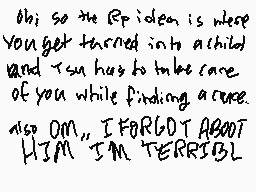 Ohi so the Rp iden is where
you get turned into a child
and Tsu has to take care
of you while finding a cure.
also OM,, I FORGOT ABOOT
HIM I'M TERRIBL